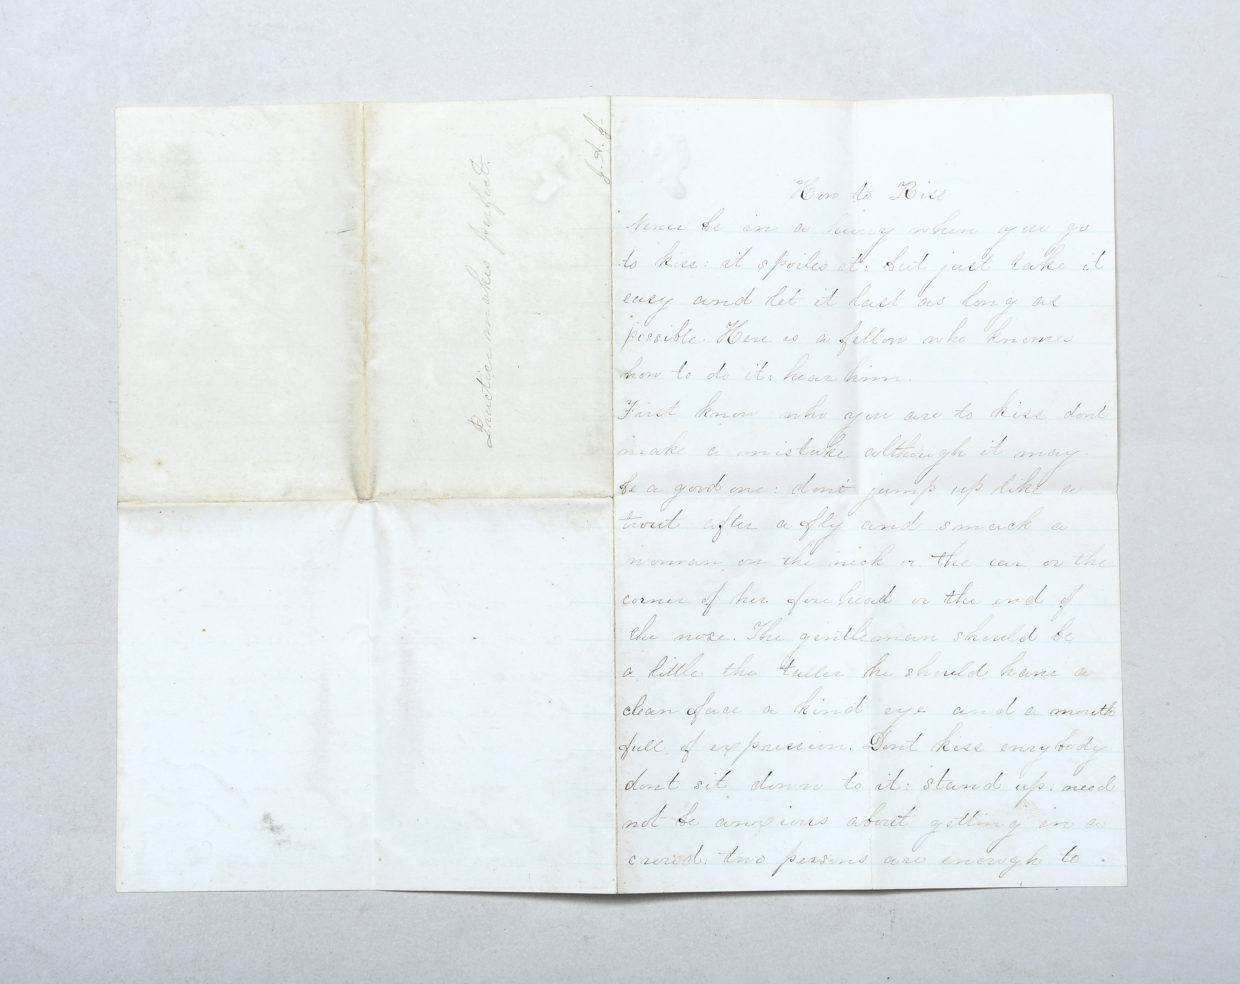 Practice makes perfect.
J. A. J.
How to Kiss
Never be in a hurry when you go
to kiss: it spoiles it: but just take it
easy and let it last as long as
possible. Here is a fellow who knows
how to do it: hear him.
First know who you are to kiss dont
make a mistake although it may
be a good one: dont jump up like a
trout after a fly and smack a
woman on the neck or the ear or the
corner of her fore head or the end of
the nose. The gentleman should be
a little the taller he should have a
clean face a kind eye and a mouth
full of expression. Dont kiss evrybody
dont sit down to it: stand up: need
not be anxious about getting in a
crowd: two persons are enough to